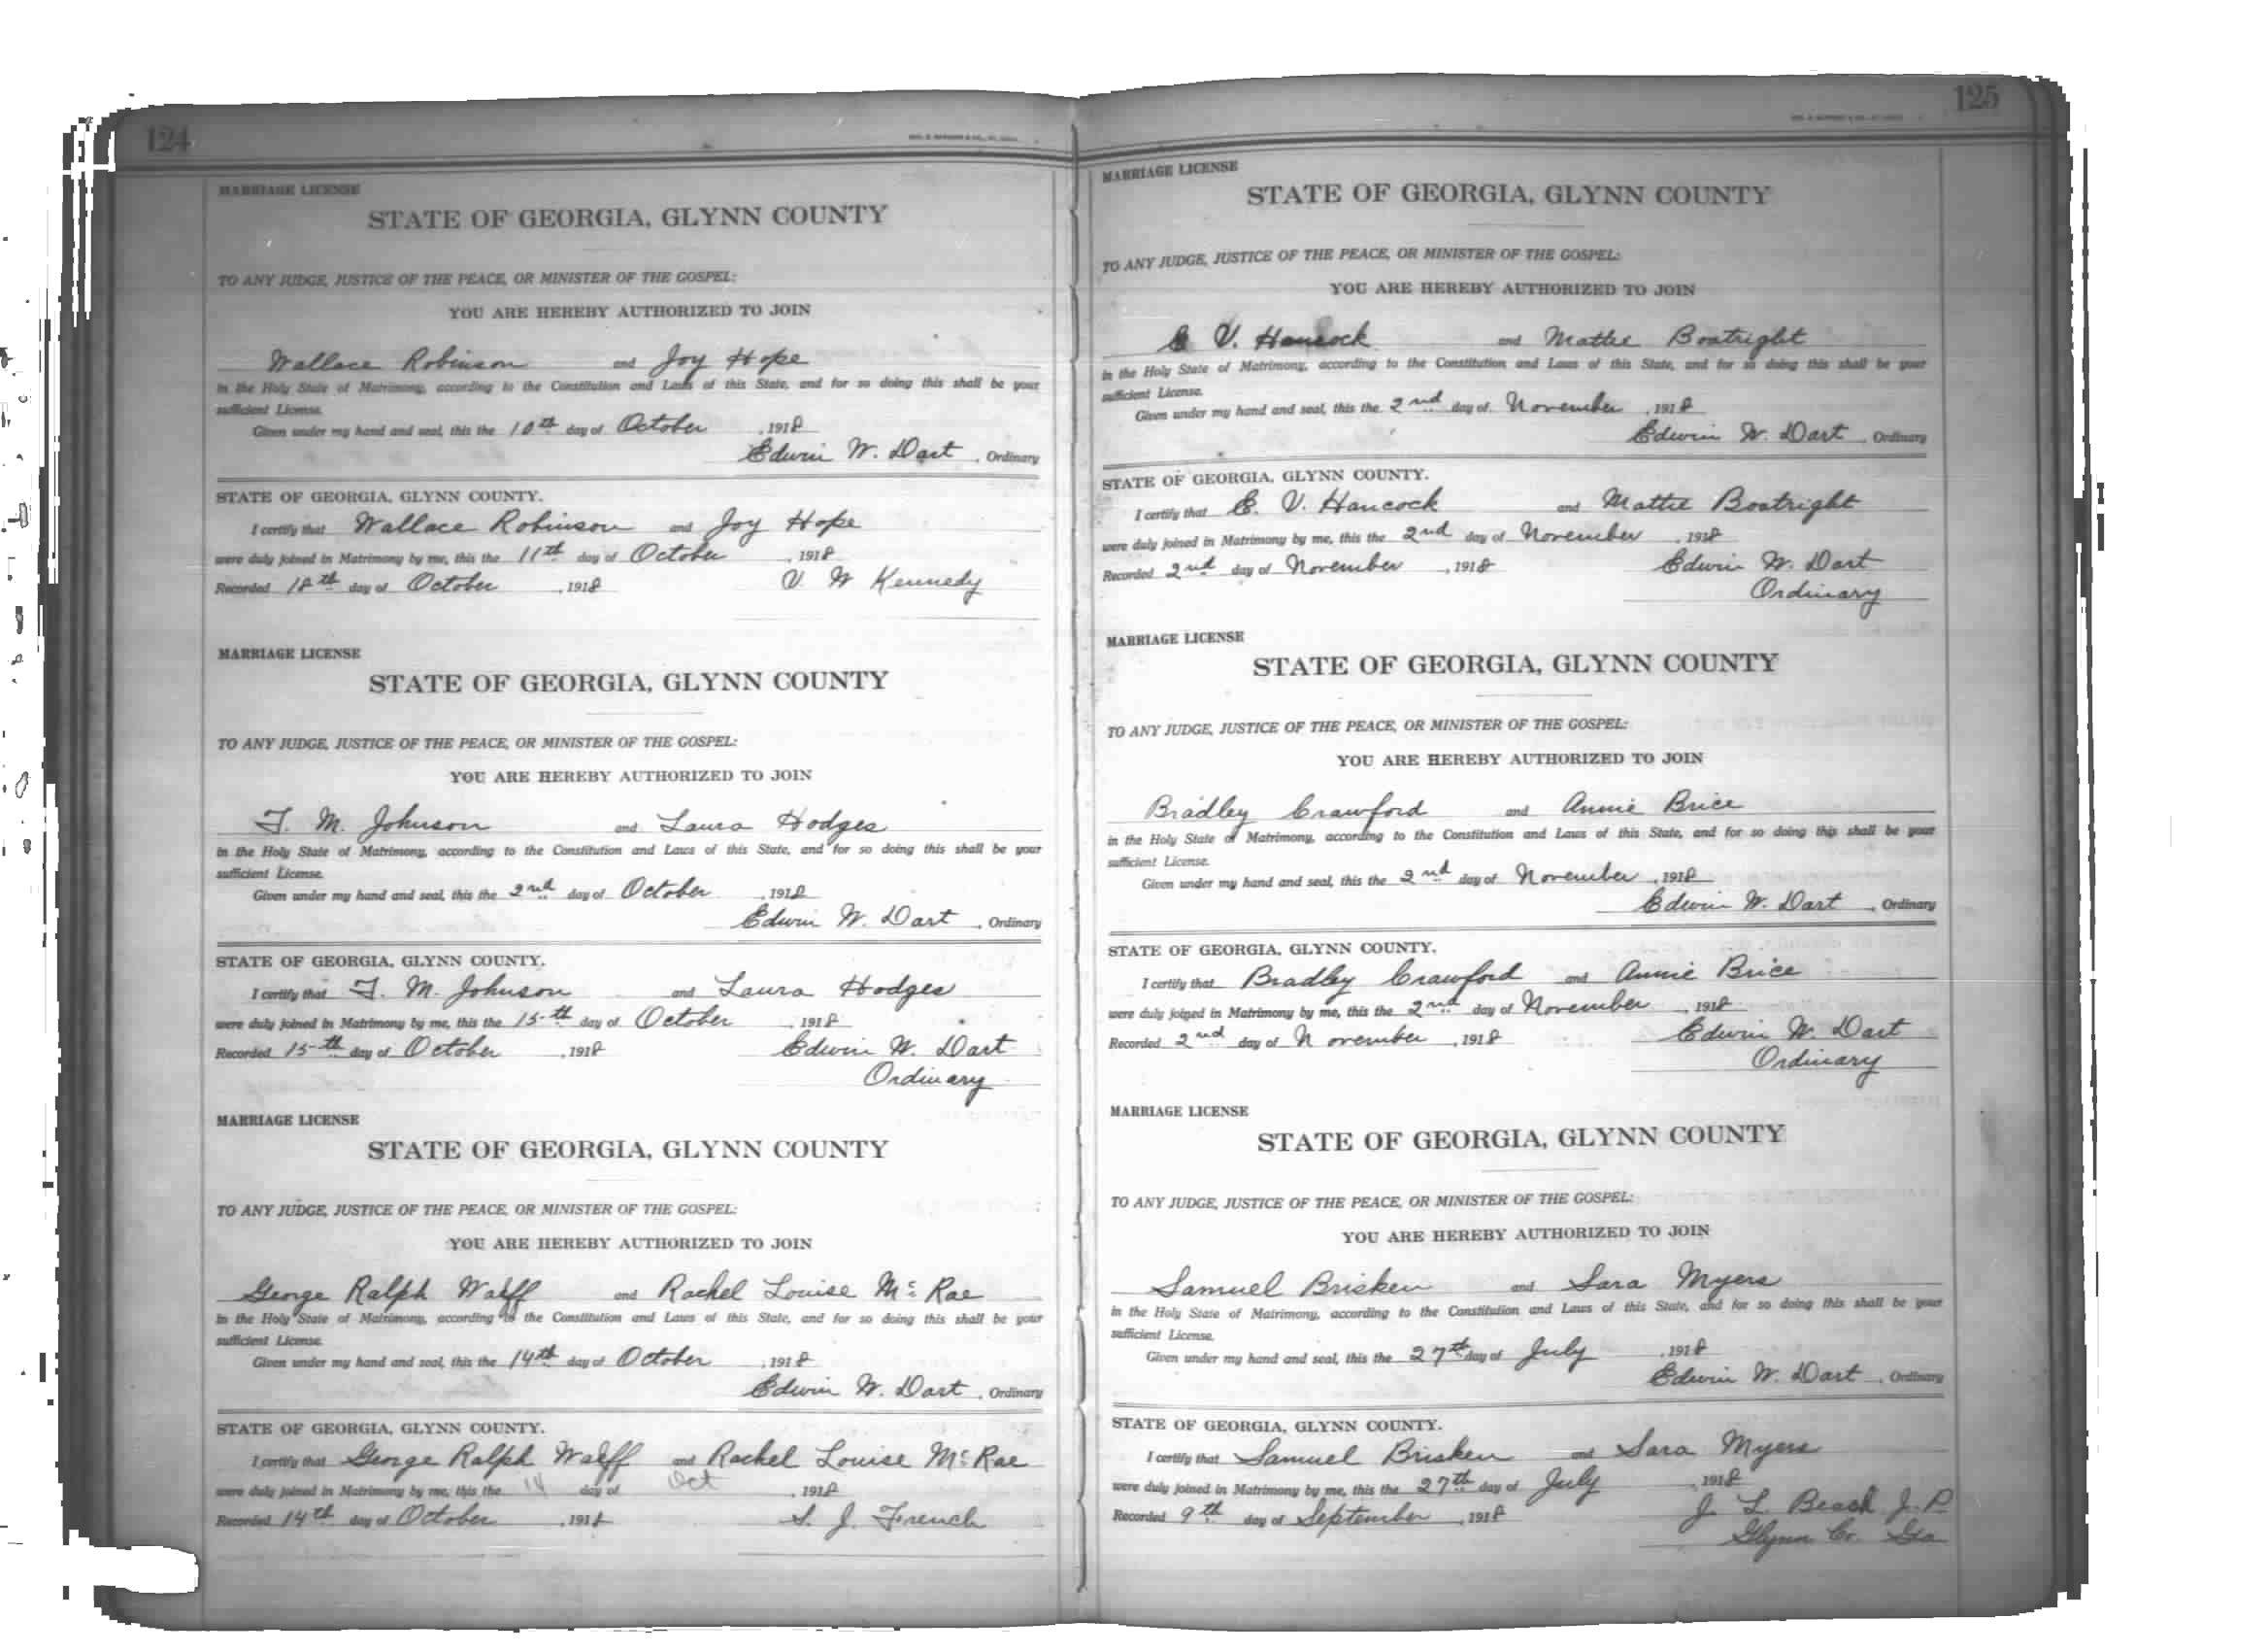 124
MARRIAGE LICENSE
STATE OF GEORGIA, GLYNN COUNTY
TO ANY JUDGE, JUSTICE OF THE PEACE, OR MINISTER OF THE GOSPEL:
YOU ARE HEREBY AUTHORIZED TO JOIN
Wallace Robinson and Joy Hope
in the Holy State of Matrimony, according to the Constitution and Laws of this State, and for so doing this shall be your
sufficient License.
Given under my hand and seal, this the 10th day of October, 1918
Edwin W. Dart, Ordinary
STATE OF GEORGIA, GLYNN COUNTY.
I certify that Wallace Robinson and Joy Hope
were duly joined in Matrimony by me, this the 11th day of October, 1918
Recorded 18th day of October, 1918 V W Kennedy
MARRIAGE LICENSE
STATE OF GEORGIA, GLYNN COUNTY
TO ANY JUDGE, JUSTICE OF THE PEACE, OR MINISTER OF THE GOSPEL:
YOU ARE HEREBY AUTHORIZED TO JOIN
T. M. Johnson and Laura Hodges
in the Holy State of Matrimony, according to the Constitution and Laws of this State, and for so doing this shall be your
sufficient License.
Given under my hand and seal, this the 2nd day of October, 1918
Edwin W. Dart, Ordinary
STATE OF GEORGIA, GLYNN COUNTY.
I certify that T. M. Johnson and Laura Hodges
were duly joined in Matrimony by me, this the 15th day of October, 1918
Recorded 15th day of October, 1918 Edwin W. Dart
Ordinary
MARRIAGE LICENSE
STATE OF GEORGIA, GLYNN COUNTY
TO ANY JUDGE, JUSTICE OF THE PEACE, OR MINISTER OF THE GOSPEL:
YOU ARE HEREBY AUTHORIZED TO JOIN
George Ralph Walff and Rachel Louise McRae
in the Holy State of Matrimony, according to the Constitution and Laws of this State, and for so doing this shall be your
sufficient License.
Given under my hand and seal, this the 14th day of October, 1918
Edwin W. Dart, Ordinary
STATE OF GEORGIA, GLYNN COUNTY.
I certify that George Ralph Walff and Rachel Louise McRae
were duly joined in Matrimony by me, this the 14 day of Oct, 1918
Recorded 14th day of October, 1918 S. J. French
125
MARRIAGE LICENSE
STATE OF GEORGIA, GLYNN COUNTY
TO ANY JUDGE, JUSTICE OF THE PEACE, OR MINISTER OF THE GOSPEL:
YOU ARE HEREBY AUTHORIZED TO JOIN
E V. Hancock and Mattie Boatright
in the Holy State of Matrimony, according to the Constitution and Laws of this State, and for so doing this shall be your
sufficient License.
Given under my hand and seal, this the 2nd day of November, 1918
Edwin W. Dart, Ordinary
STATE OF GEORGIA, GLYNN COUNTY.
I certify that E. V. Hancock and Mattie Boatright
were duly joined in Matrimony by me, this the 2nd day of November, 1918
Recorded 2nd day of November, 1918 Edwin W. Dart
Ordinary
MARRIAGE LICENSE
STATE OF GEORGIA, GLYNN COUNTY
TO ANY JUDGE, JUSTICE OF THE PEACE, OR MINISTER OF THE GOSPEL:
YOU ARE HEREBY AUTHORIZED TO JOIN
Bradley Crawford and Annie Brice
in the Holy State of Matrimony, according to the Constitution and Laws of this State, and for so doing this shall be your
sufficient License.
Given under my hand and seal, this the 2nd day of November, 1918
Edwin W. Dart, Ordinary
STATE OF GEORGIA, GLYNN COUNTY.
I certify that Bradley Crawford and Annie Brice
were duly joined in Matrimony by me, this the 2nd day of November, 1918
Recorded 2nd day of November, 1918 Edwin W. Dart
Ordinary
MARRIAGE LICENSE
STATE OF GEORGIA, GLYNN COUNTY
TO ANY JUDGE, JUSTICE OF THE PEACE, OR MINISTER OF THE GOSPEL:
YOU ARE HEREBY AUTHORIZED TO JOIN
Samuel Brisken and Sara Myers
in the Holy State of Matrimony, according to the Constitution and Laws of this State, and for so doing this shall be your
sufficient License.
Given under my hand and seal, this the 27th day of July, 1918
Edwin W. Dart, Ordinary
STATE OF GEORGIA, GLYNN COUNTY.
I certify that Samuel Brisken and Sara Myers
were duly joined in Matrimony by me, this the 27th day of July, 1918
Recorded 9th day of September, 1918 J. L. Beach J. P.
Glynn Co. Ga